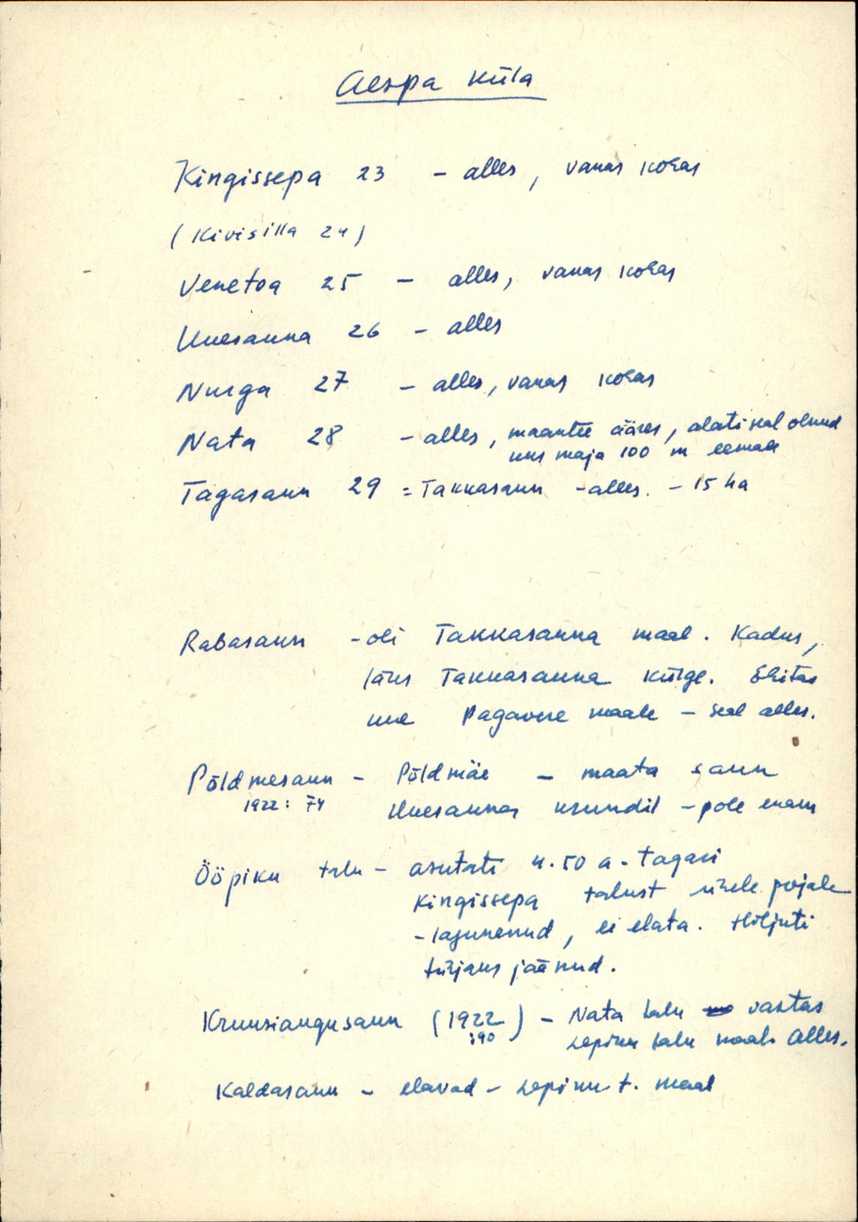 Aespa küla
Kingissepa 23 - alles, vanas kohas
(Kivisilla 24)
Venetoa 25 - alles, vanas kohas
Uuesauna 26 - alles
Nurga 27 - alles, vanas kohas
Nata 28 - alles, maantee ääres, alati seal olnud
uus maja 100 m eemale
Tagasaun 29 = Takkasaun - alles. - 15 ha
Rabasaun - oli Takkasauna maal. Kadus,
läks Takkasauna külge. Ehitas
uue Pagavere maale - seal alles.
Põldmesaun - Põldmäe - maata saun
1922: 74 Uuesaunas krundil - pole enam
Ööpiku talu - asutati u. 50 a. tagasi
Kingissepa talust ühele pojale
- lagunenud, ei elata. Hiljuti
tühjaks jäänud.
Kruusiaugusaun (1922 :90) - Nata talu vastas
Lepiku talu maal. Alles.
Kaldasaun - elavad - Lepiku t. maal